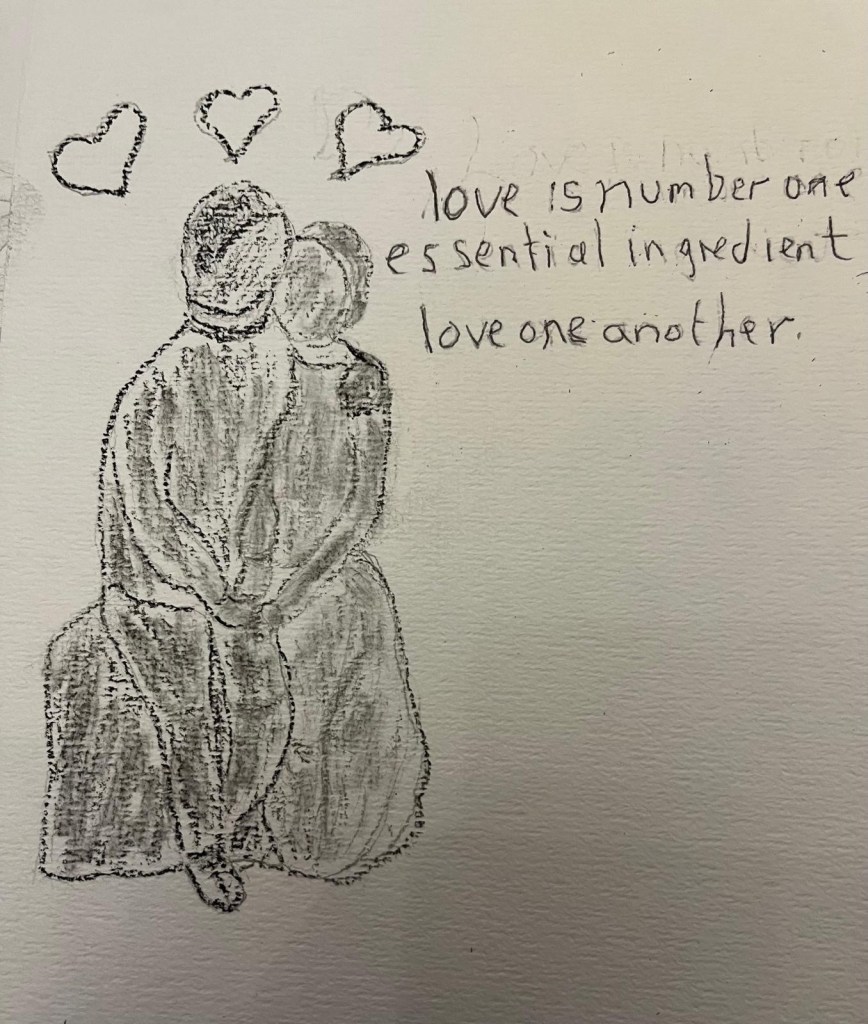 love is number one
essential ingredient
love one another.